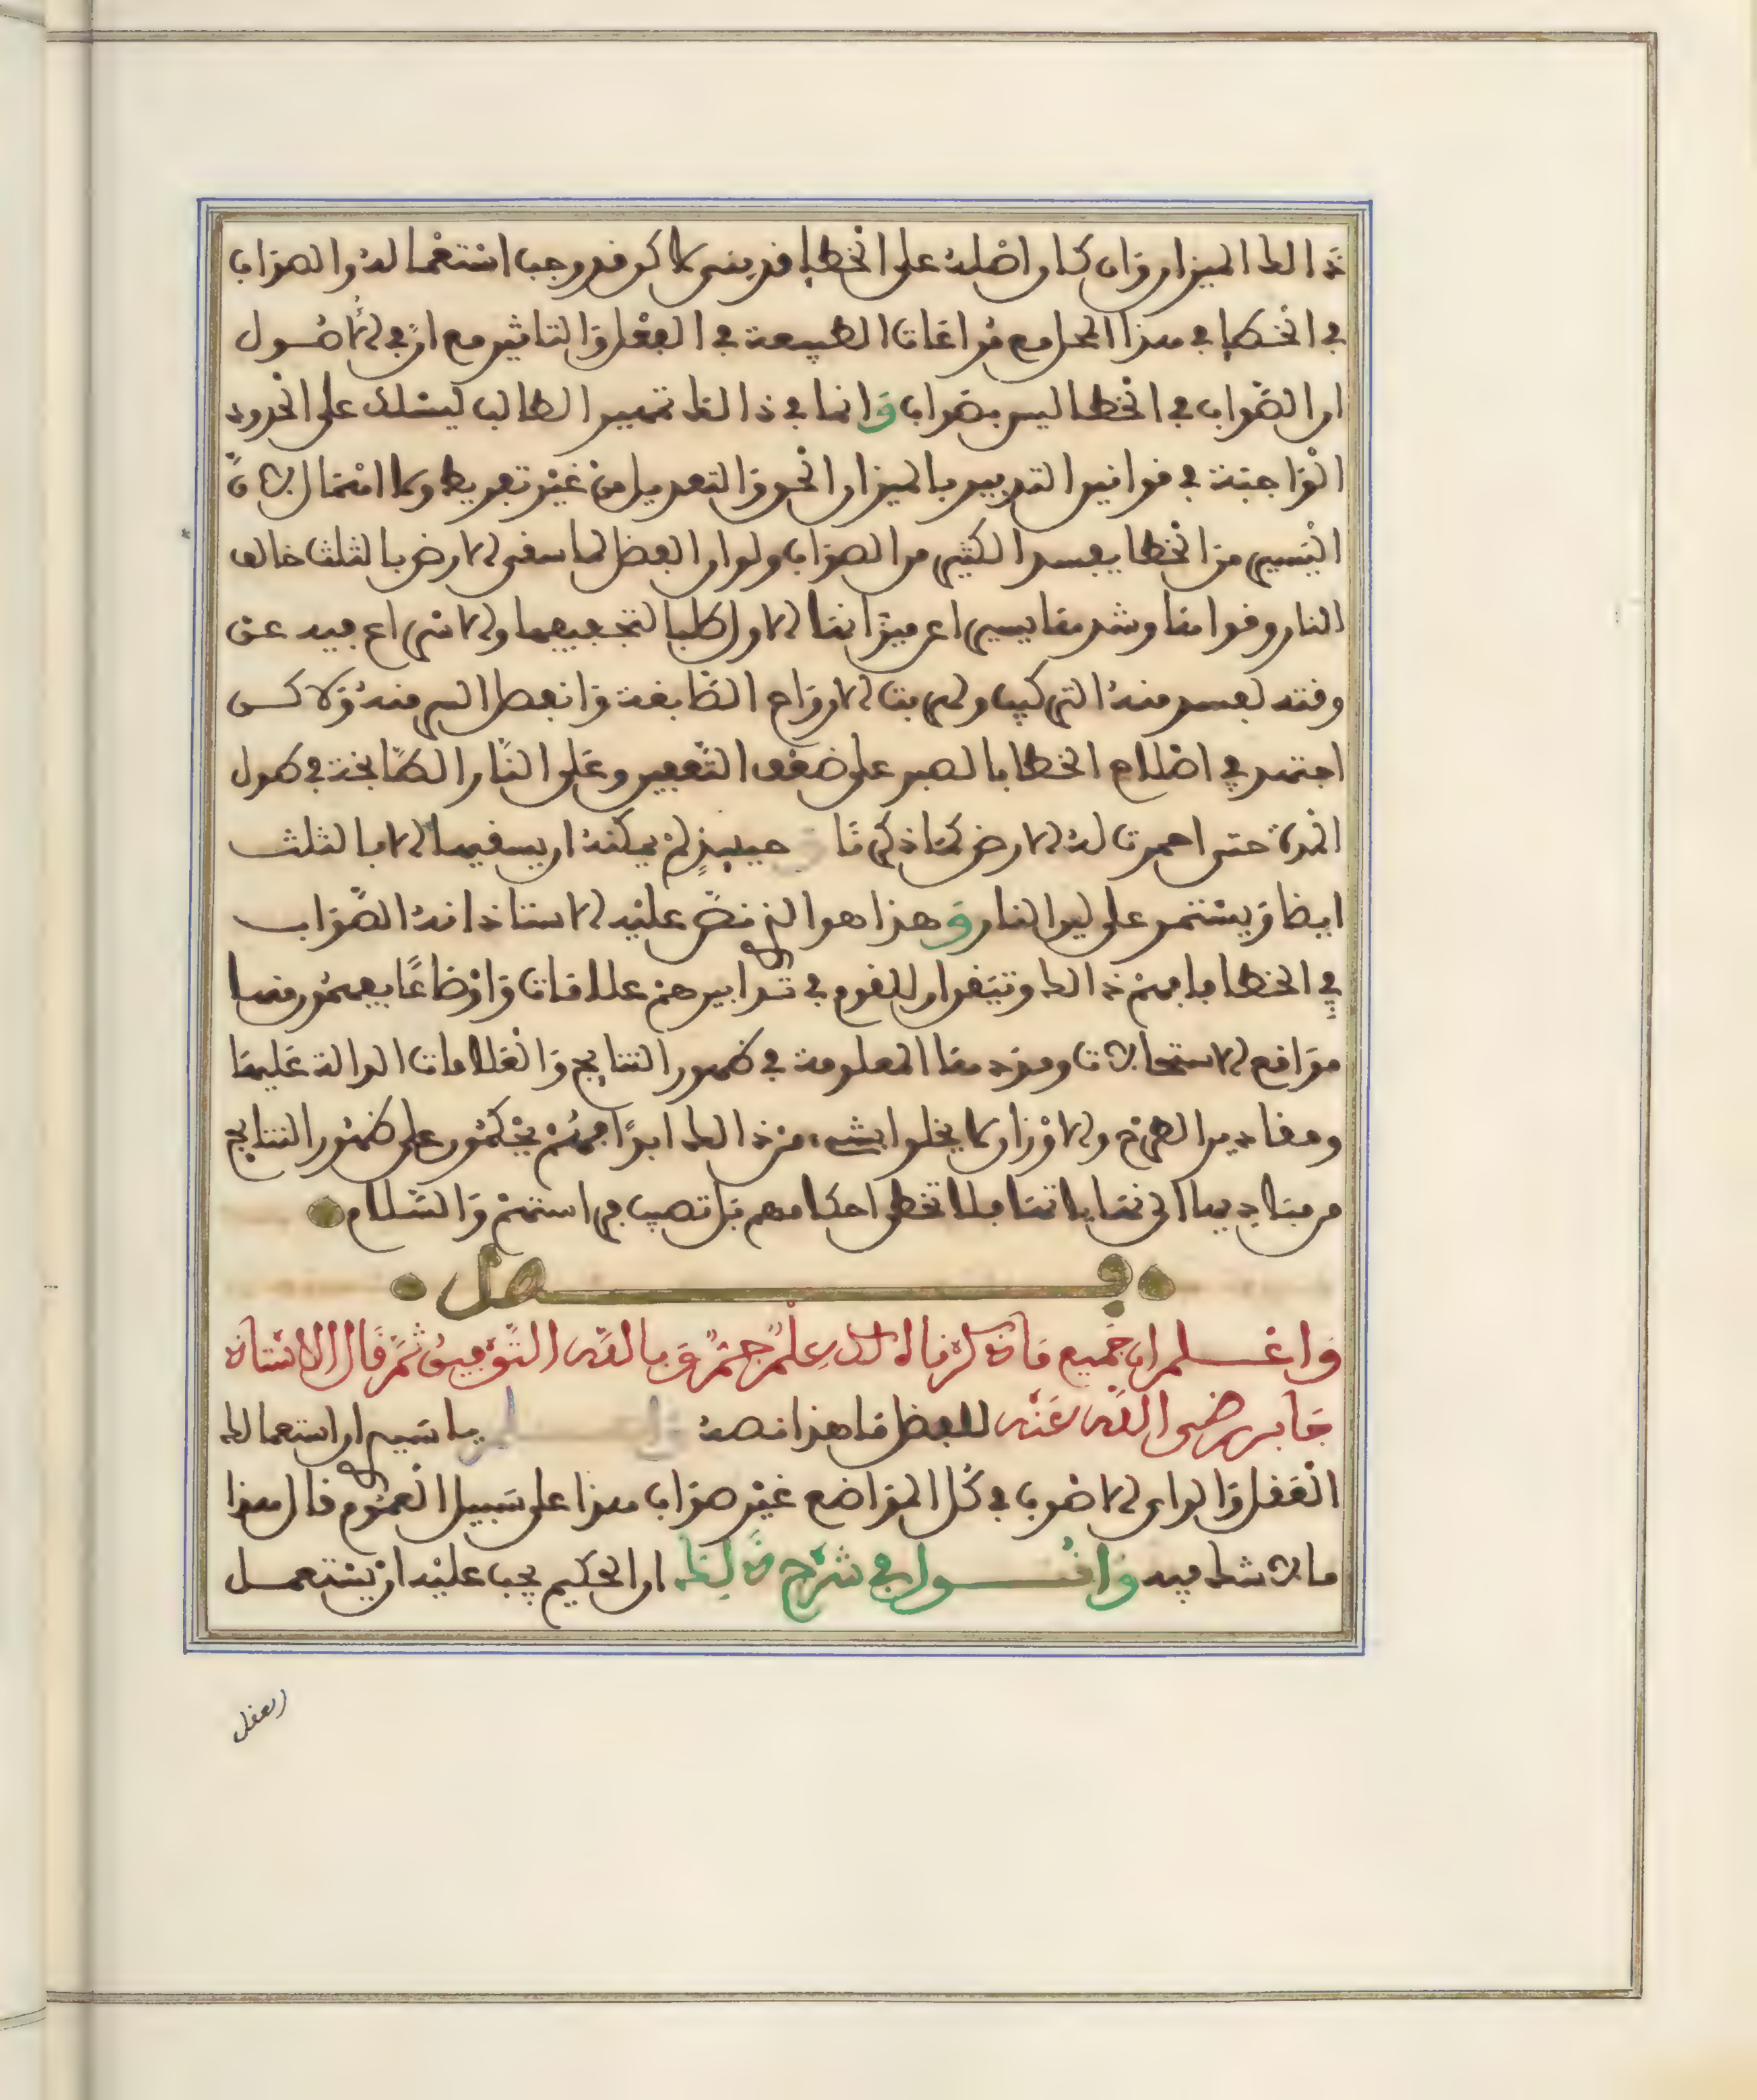 ذالك الميزان وان كان اصله على الخطا فدينى لاكن قد وجب استعماله والصواب
في الخطا في هذا المحل مع مراعات الطبيعة في الفعل والتاثير مع ان في الاصول
ان الصواب في الخطا ليس بصواب وانما في ذالك تمييز الطالب ليسلك على الحدود
الواجبة في قوانين التدبير بالميزان الحق والتعديل من غير تفريط ولا اهمال لان
اليسير من الخطا يفسد الكثير من الصواب ولو ان البعض لما سقى الارض بالثلث خالف
النار وقوامها وشد مقاييس اعن ميزانها الاول طلبا لتجفيفها والاسراع فيه عن
وقته لفسد منه التركيب ولهربت الارواح الصابغة وانفصل السر منه ولاكن
اجتهد في اصلاح الخطا بالصبر على ضعف التعفين وعلى النار الطابخة في طول
المدة حتى احمرت له الارض كما ذكرنا حينيذ لم يمكنه ان يسقيها الا بالثلث
ايضا ويستمر على لين النار وهذا هو الذي نص عليه الاستاذ انه الصواب
في الخطا فافهم ذالك وتيقن ان للقوم في تدابيرهم علامات واوضاعا يفهمون منها
مواقع الاستحالات ومددها المعلومة في ظهور النتايج والعلامات الدالة عليها
ومقادير الطرح والاوزان لا يخلوا بشيء من ذالك ابدا فهم يحكمون على ظهور النتايج
من مباديها الى نهاياتها فلا تخطى احكامهم بل تصيب فراستهم والسلام
فصل
واعلم ان جميع ما ذكرنا لك علم جم وبالله التوفيق ثم قال الاستاذ
جابر رضى الله عنه للبعض ما هذا نصه واعلم يا سيدي ان استعمالك
العقل والراي الاصوب في كل المواضع غير صواب هذا على سبيل العموم قال هذا
ما لا شك فيه واقول في شرح ذلك ان الحكيم يجب عليه ان يستعمل
العقل